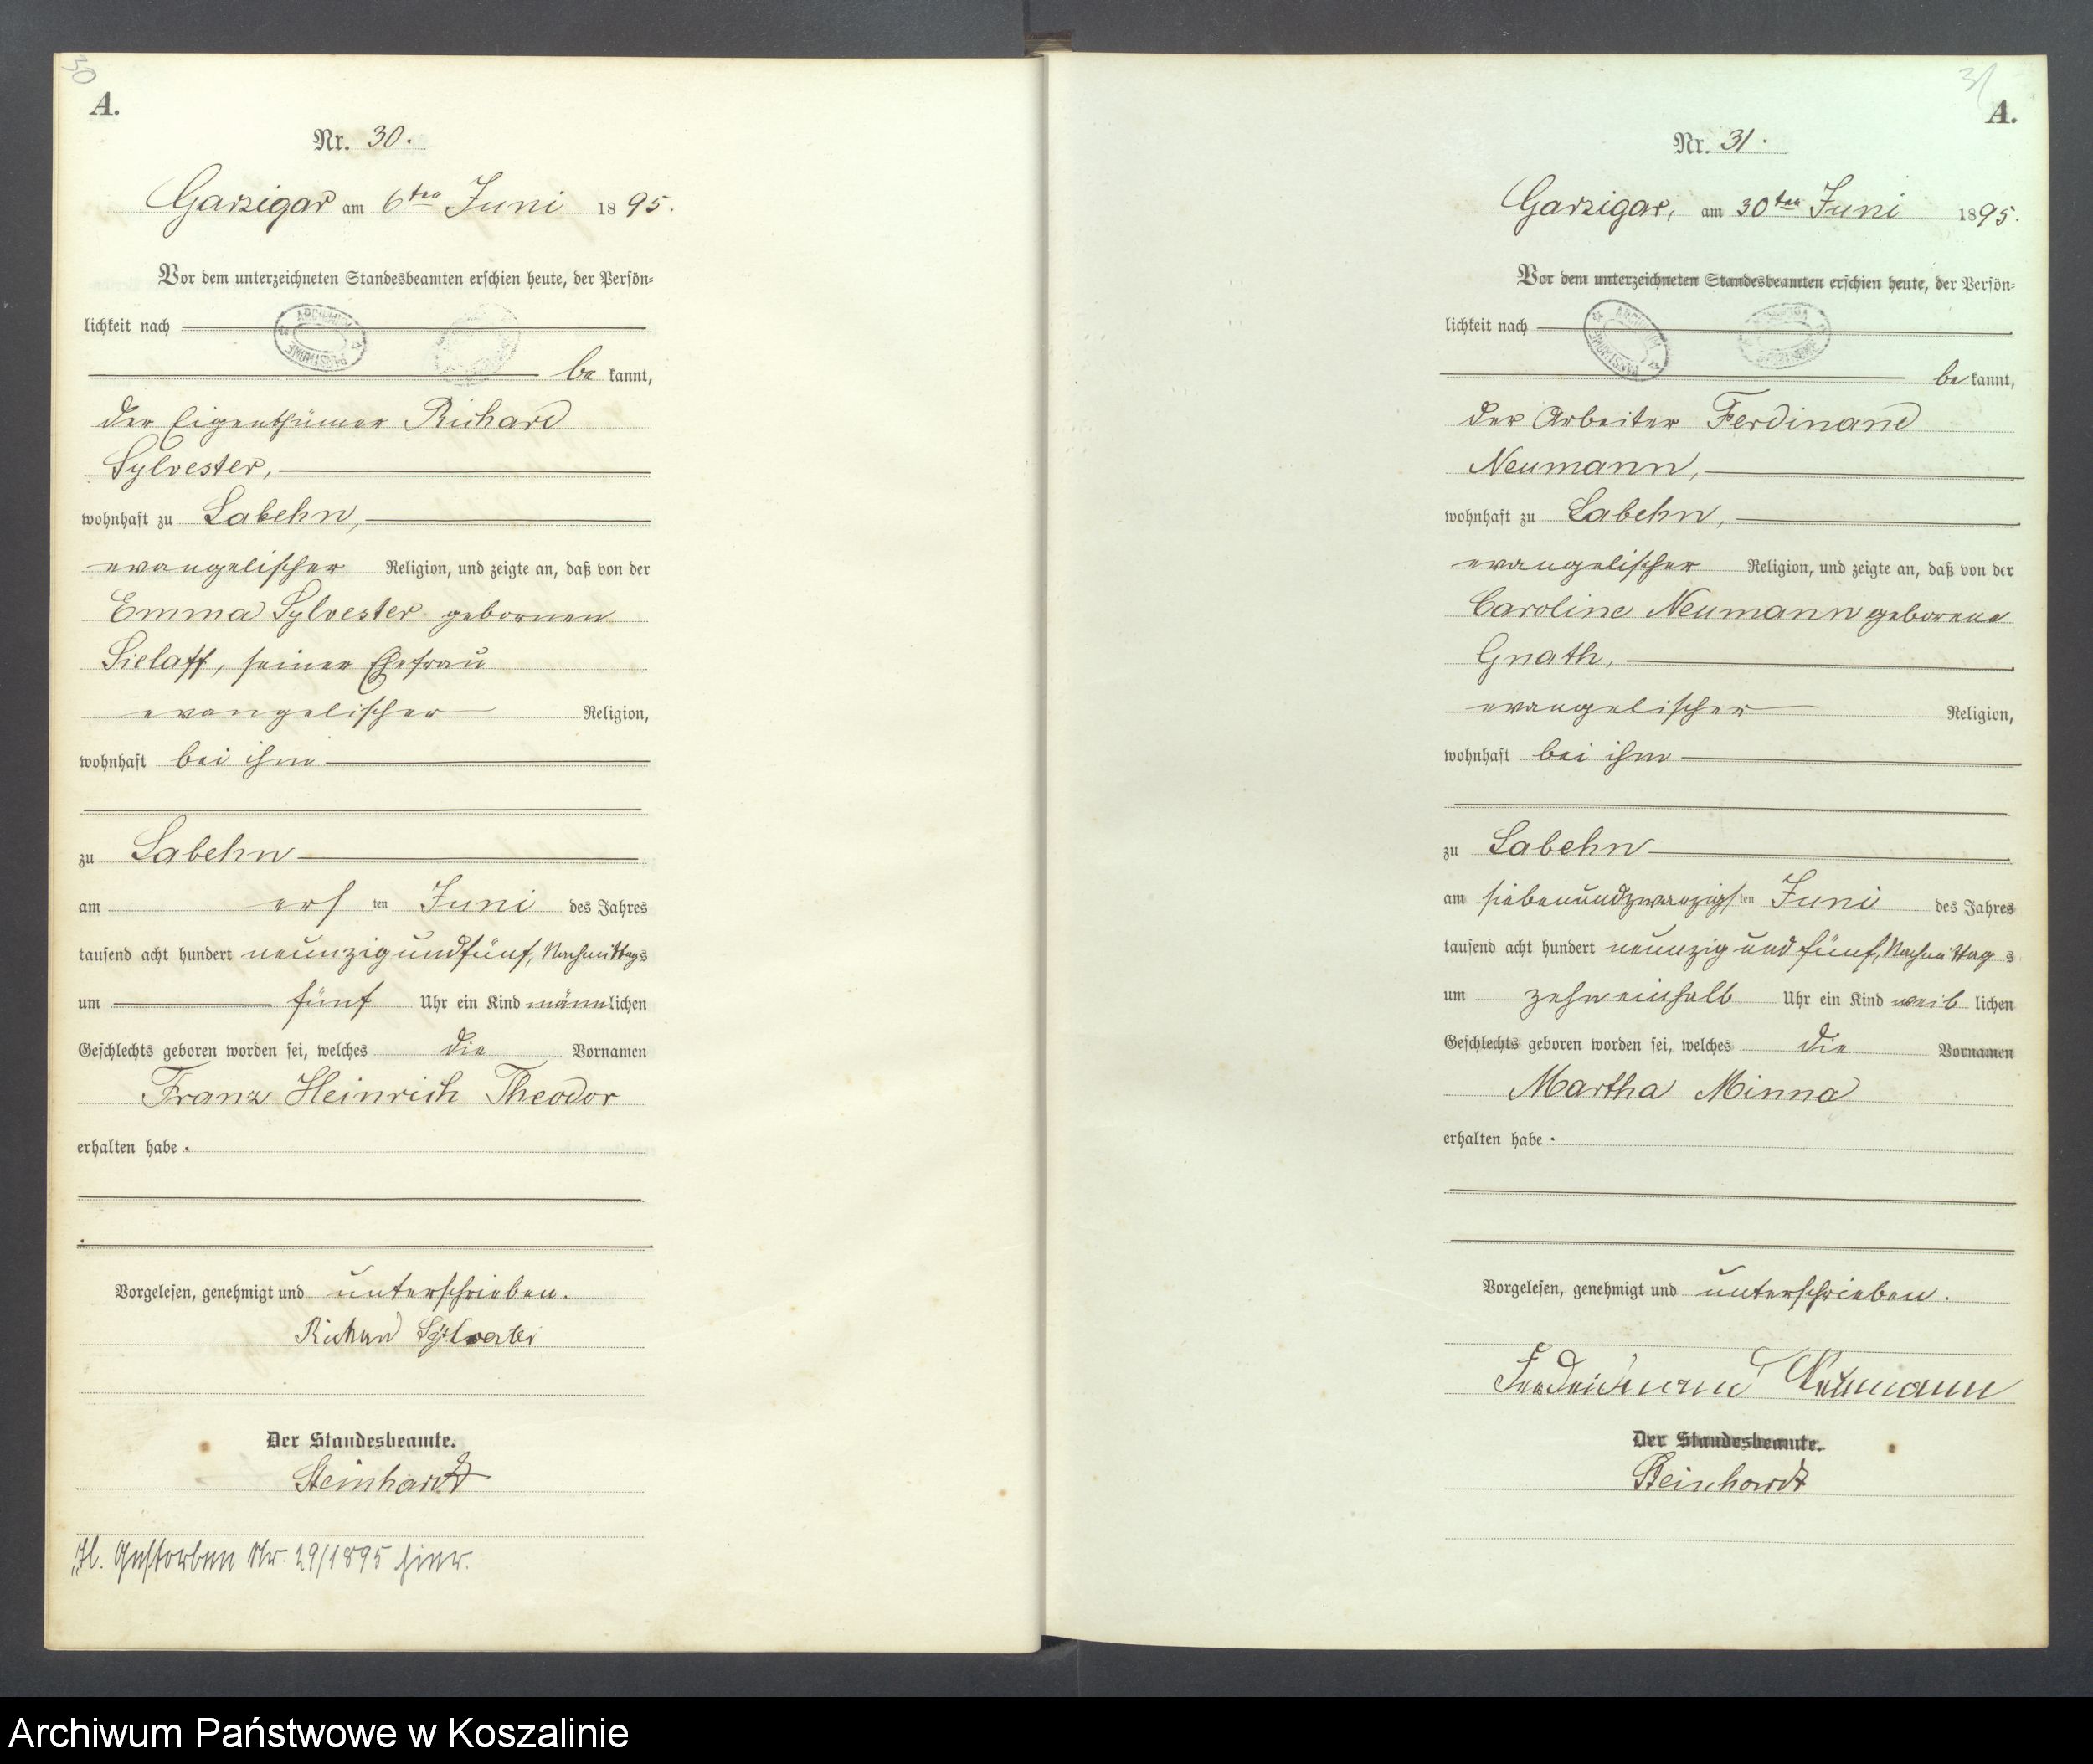 30
A.
Nr. 30.
Garzigar am 6ten Juni 1895.
Vor dem unterzeichneten Standesbeamten erschien heute, der Persön-
lichkeit nach
bekannt,
der Eigenthümer Richard
Sylvester,
wohnhaft zu Labehn,
evangelischer Religion, und zeigte an, daß von der
Emma Sylvester gebornen
Sielaff, seiner Ehefrau
evangelischer Religion,
wohnhaft bei ihm
zu Labehn
am ersten Juni des Jahres
tausend acht hundert neunzig und fünf, Nachmittags
um fünf Uhr ein Kind männlichen
Geschlechts geboren worden sei, welches die Vornamen
Franz Heinrich Theodor
erhalten habe.
Vorgelesen, genehmigt und unterschrieben.
Richard Sylvester
Der Standesbeamte.
Steinhardt
Gestorben Nr. 29/1895 hier.
31
A.
Nr. 31.
Garzigar, am 30ten Juni 1895.
Vor dem unterzeichneten Standesbeamten erschien heute, der Persön-
lichkeit nach
bekannt,
der Arbeiter Ferdinand
Neumann,
wohnhaft zu Labehn,
evangelischer Religion, und zeigte an, daß von der
Caroline Neumann geborene
Gnath,
evangelischer Religion,
wohnhaft bei ihm
zu Labehn
am siebenundzwanzigsten Juni des Jahres
tausend acht hundert neunzig und fünf, Nachmittags
um zehneinhalb Uhr ein Kind weiblichen
Geschlechts geboren worden sei, welches die Vornamen
Martha Minna
erhalten habe.
Vorgelesen, genehmigt und unterschrieben.
Neumann
Der Standesbeamte.
Steinhardt
Archiwum Państwowe w Koszalinie